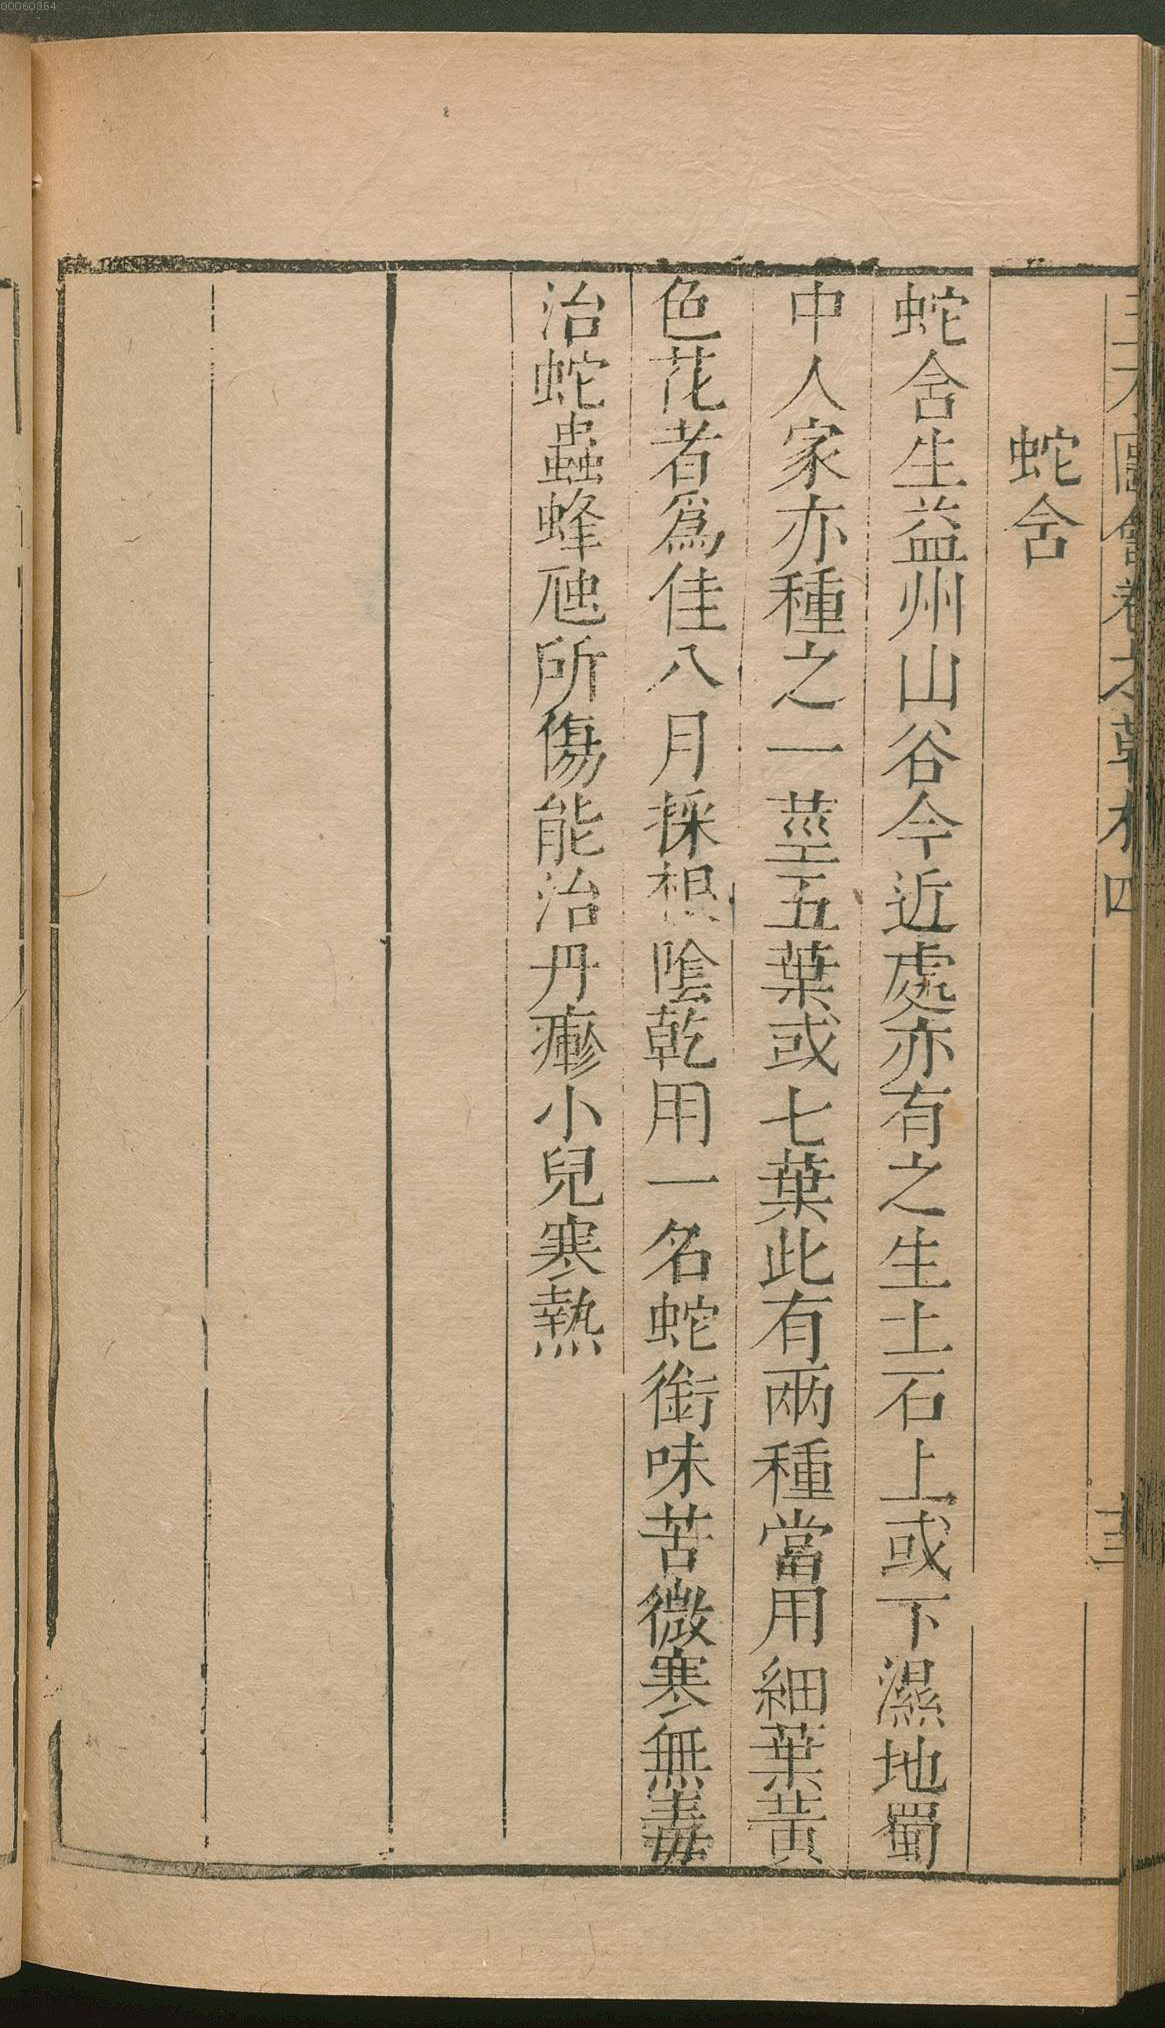 三才圖會卷之草木四
十三
蛇含
蛇含生益州山谷今近處亦有之生土石上或下濕地蜀
中人家亦種之一莖五葉或七葉此有兩種當用細葉黃
色花者爲佳八月採根陰乾用一名蛇銜味苦微寒無毒
治蛇蟲蜂虺所傷能治丹瘮小兒寒熱
00060354